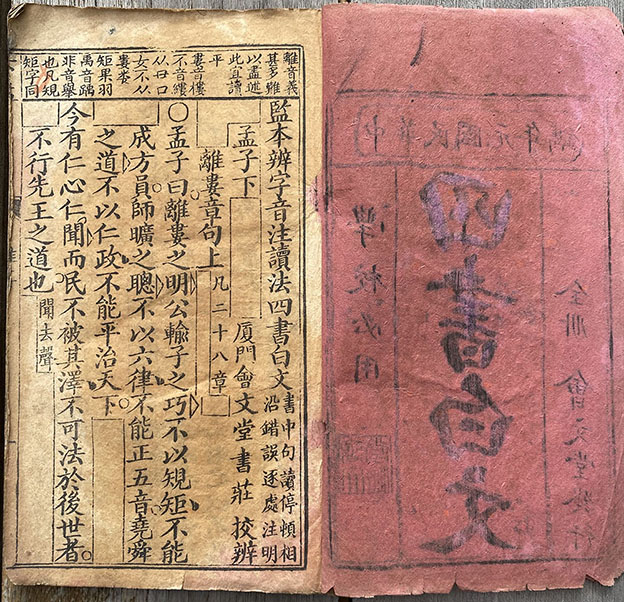 中華民國元年
學校必用
四書白文
會文堂發行
離音義
甚多難
以盡述
此宜讀
平
婁音樓
不音縷
从毋口
女不从
婁
矩果羽
禹音踽
非音舉
也凡規
矩字同
監本辨字音注讀法四書白文 書中句讀停頓相沿錯誤逐處注明
孟子下 厦門會文堂書莊 校辨
離婁章句上 凡二十八章
〇孟子曰離婁之明公輸子之巧不以規矩不能
成方員師曠之聰不以六律不能正五音堯舜
之道不以仁政不能平治天下
今有仁心仁聞而民不被其澤不可法於後世者
不行先王之道也 聞去聲